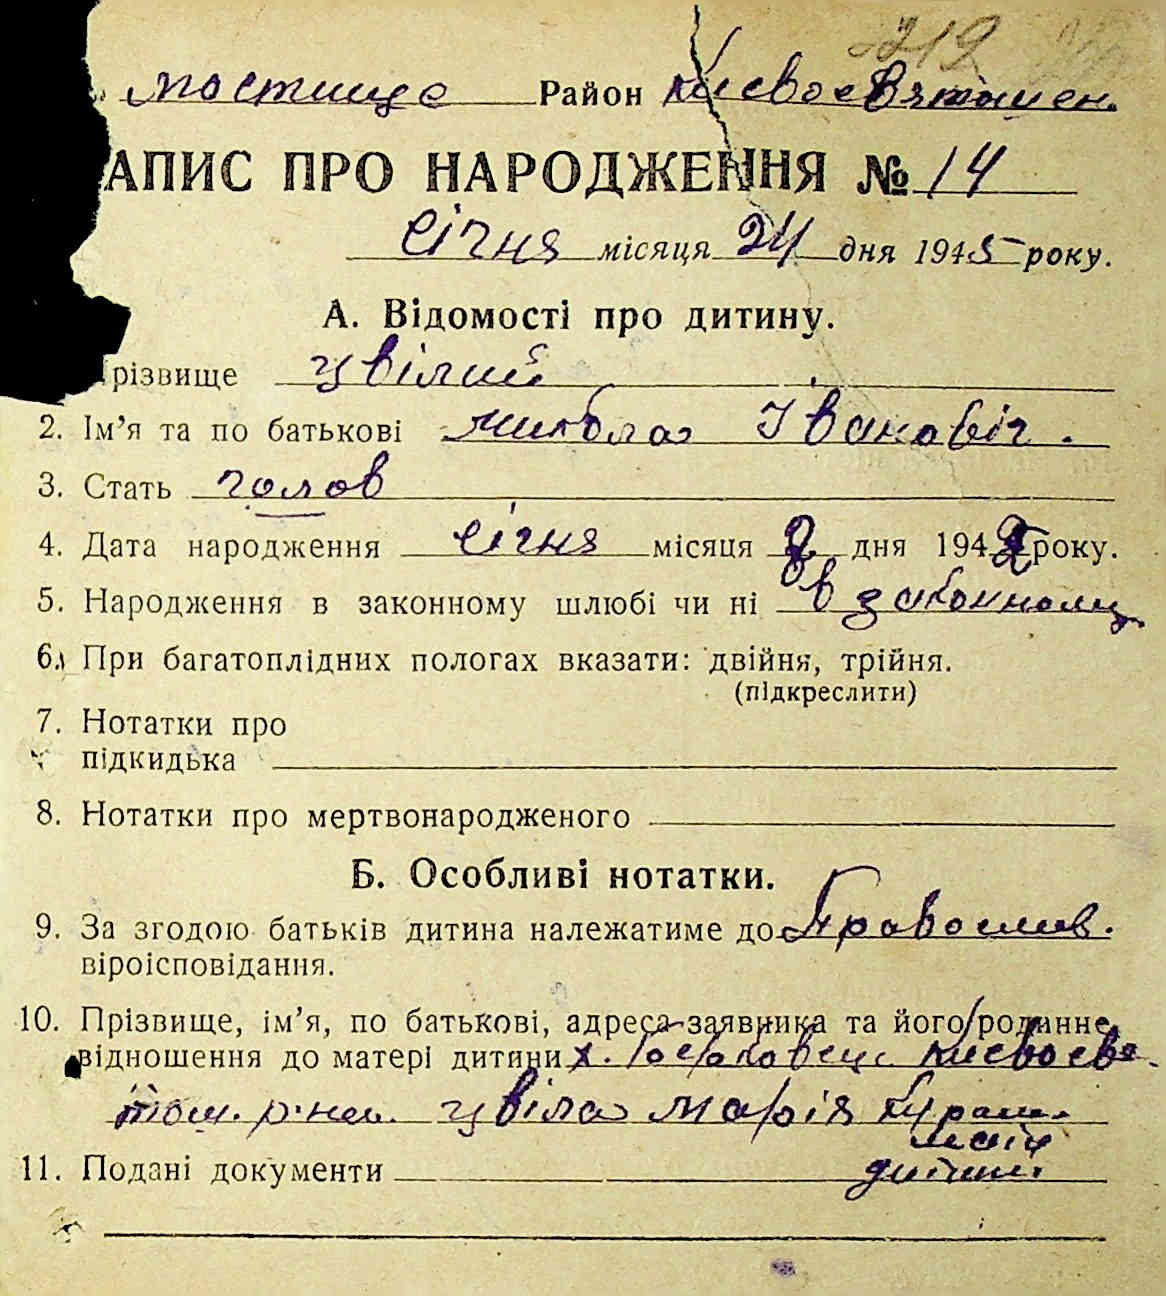 219
мостище Район Києвосвятошен.
АПИС ПРО НАРОДЖЕННЯ № 14
січня місяця 24 дня 1945 року.
А. Відомості про дитину.
різвище цвілий
2. Ім’я та по батькові микола Івановіч.
3. Стать чолов
4. Дата народження січня місяця 2 дня 1942 року.
5. Народження в законному шлюбі чи ні в законному
6. При багатоплідних пологах вказати: двійня, трійня.
(підкреслити)
7. Нотатки про
підкидька
8. Нотатки про мертвонародженого
Б. Особливі нотатки.
9. За згодою батьків дитина належатиме до Православ.
віроісповідання.
10. Прізвище, ім’я, по батькові, адреса заявника та його родинне
відношення до матері дитини х. Києвосвя-
тош. р-на. цвіла марія
дитини.
11. Подані документи